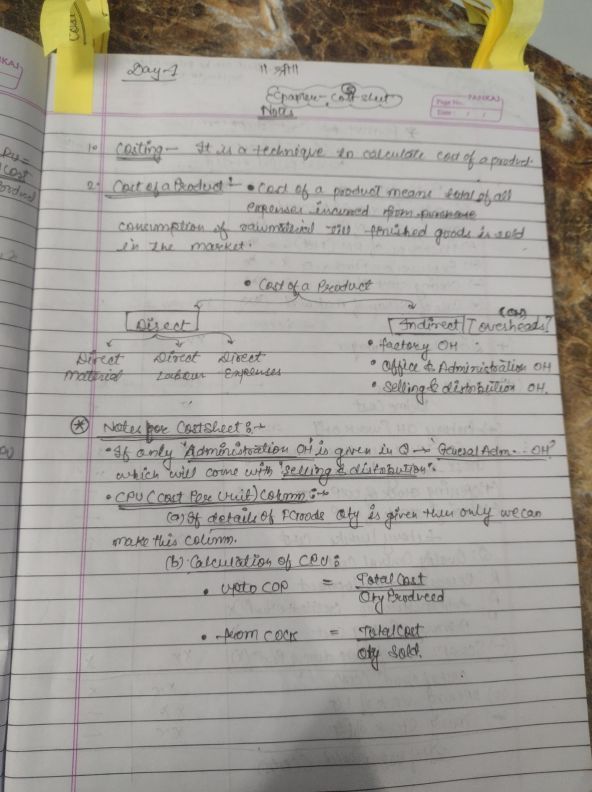 Cost
Day-1 ॥ श्री॥
Chapter- Cost sheet
Notes
PANKAJ
Page No.
Date : / /
1. Costing - It is a technique to calculate cost of a product.
2. Cost of a Product :- • Cost of a product means total of all
expenses incurred from purchase
consumption of raw material till finished goods is sold
in the market.
• Cost of a Product
Direct
Direct Material
Direct Labour
Direct Expenses
(OH)
Indirect / overheads
• factory OH
• Office & Administration OH
• Selling & distribution OH.
Notes for Cost Sheet :-
• If only 'Administration OH' is given in Q → 'General Adm. OH'
which will come with 'Selling & distribution'.
• CPU (Cost Per Unit) Column :-
(a) If details of FGoods Qty is given then only we can
make this column.
(b) Calculation of CPU :
• upto COP = Total Cost
Qty Produced
• from COGS = Total Cost
Qty Sold.